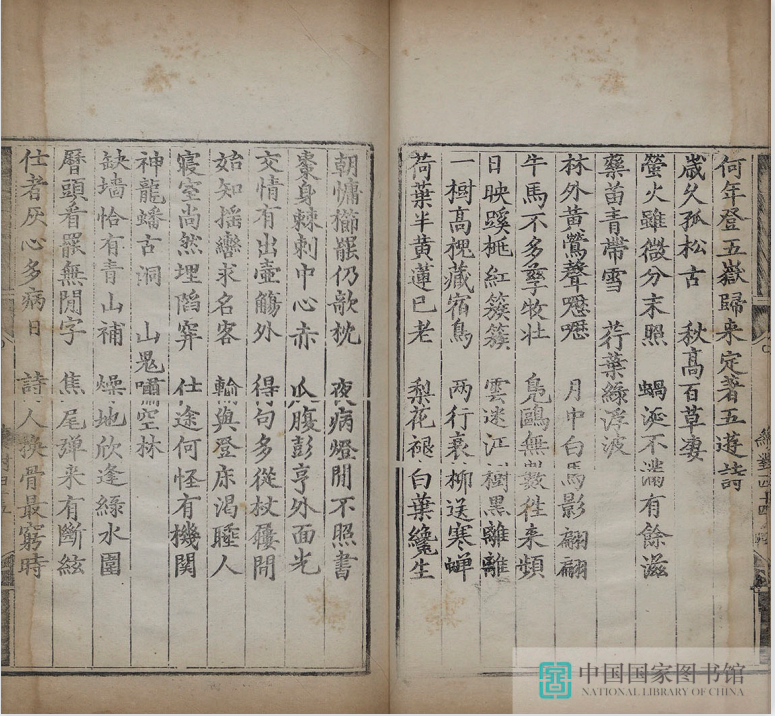 何年登五嶽歸來定著五遊詩
歲久孤松古　秋高百草凄
螢火雖微分末照　蝸涎不滿有餘滋
藥苗青帶雪　荇葉綠浮波
林外黃鶯聲嚦嚦　月中白馬影翩翩
牛馬不多孳牧壯　鳧鷗無數往来頻
日映蹊桃紅簇簇　雲迷江樹黑離離
一樹高槐藏宿鳥　两行衰柳送寒蟬
荷葉半黃蓮已老　梨花褪白葉纔生
朝慵櫛罷仍欹枕　夜病燈閒不照書
棗身棘刺中心赤　瓜腹彭亨外面光
交情有出壺觴外　得句多從杖屨閒
始知搖轡求名客　輸與登床渴睡人
寢室尚然埋䧟穽　仕途何怪有機関
神龍蟠古洞　山鬼嘯空林
缺墻恰有青山補　燥地欣逢綠水圍
曆頭看罷無閒字　焦尾弹来有斷絃
仕者灰心多病日　詩人换骨最窮時
中国国家图书馆
NATIONAL LIBRARY OF CHINA